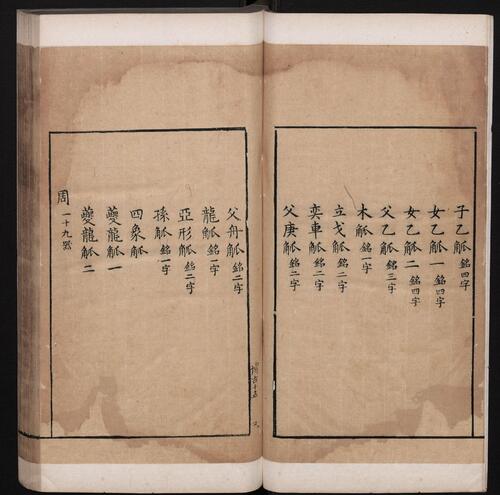 子乙觚 銘四字
女乙觚一 銘四字
女乙觚二 銘四字
父乙觚 銘三字
木觚 銘一字
立戈觚 銘二字
奕車觚 銘二字
父庚觚 銘二字
父舟觚 銘二字
龍觚 銘一字
亞形觚 銘二字
孫觚 銘一字
四象觚
夔龍觚一
夔龍觚二
周 一十九器